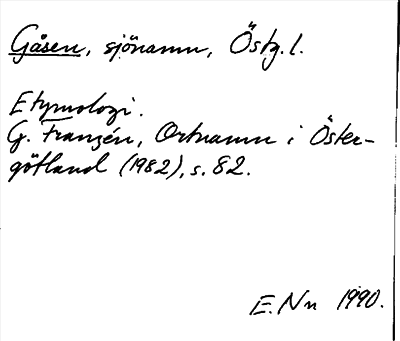 Gåsen, sjönamn, Östg. l.
Etymologi.
G. Franzén, Ortnamn i Öster-
götland (1982), s. 82.
E. Nn 1990.